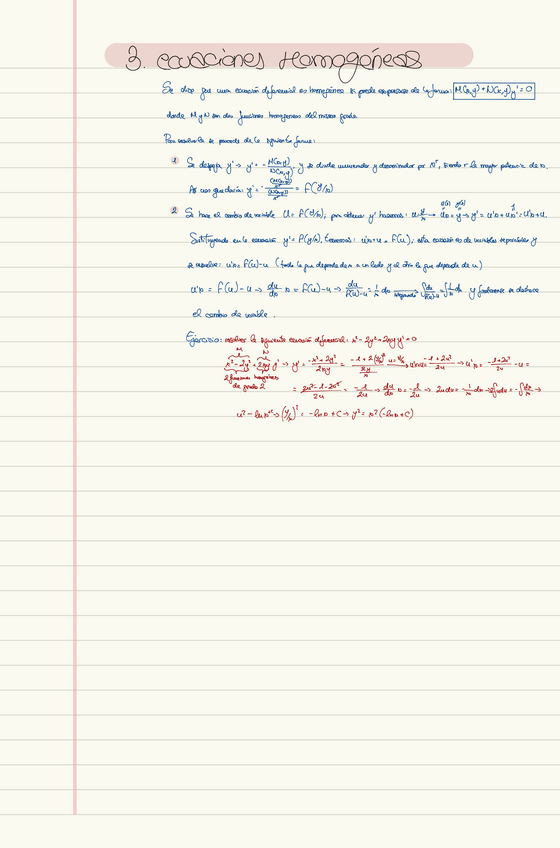 3. ecuaciones Homogéneas
Se dice que una ecuación diferencial es homogénea si puede expresarse de la forma: M(x,y)+N(x,y)y'=0
donde M y N son dos funciones homogéneas del mismo grado
Para resolverla se procede de la siguiente forma:
1 Se despeja y' → y' = -M(x,y)/N(x,y), y se divide numerador y denominador por xʳ, siendo r la mayor potencia de x.
Así nos quedaría: y' = = f(y/x)
2 Se hace el cambio de variable u = f(y/x), para obtener y' hacemos: u=y/x → ux = y → y' = u'x+ux' = u'x+u.
Sustituyendo en la ecuación y' = f(y/x), tenemos: u'x+u = f(u), esta ecuación es de variables separables y
se resuelve: u'x = f(u)-u (todo lo que depende de x a un lado y al otro lo que depende de u)
u'x = f(u)-u → du/dx x = f(u)-u → du/f(u)-u = 1/x dx → ∫du/f(u)-u = ∫1/x dx y finalmente se deshace
el cambio de variable.
Ejercicio: resolver la siguiente ecuación diferencial: x²-2y²+2xyy'=0
M N
x²-2y²+2xy y' → y' = -x²+2y²/2xy = -1+2(y/x)²/2y/x u=y/x → u'x+u = -1+2u²/2u → u'x = -1+2u²/2u -u =
2 funciones homogéneas
de grado 2
= 2u²-1-2u²/2u = -1/2u → du/dx x = -1/2u → 2udu = -1/x dx → ∫2udu = -∫dx/x →
(y/x)² = -lnx + C → y² = x²(-lnx+C)